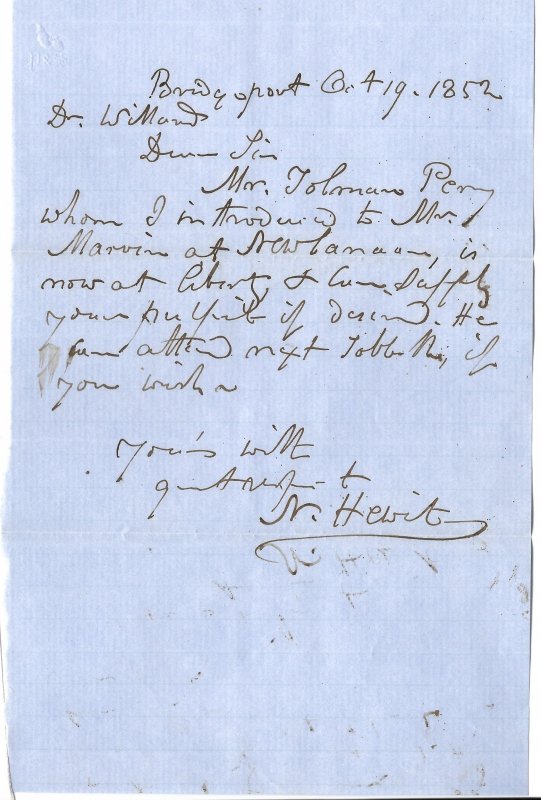 Bridgeport Oct 19. 1852
Dr. Willard
Dear Sir
Mr. Tolman Perry
whom I introduced to Mr.
Marvin at New Canaan, is
now at liberty & can supply
your pulpit if desired. He
can attend next Sabbath, if
you wish
yours with
great respect
N. Hewit